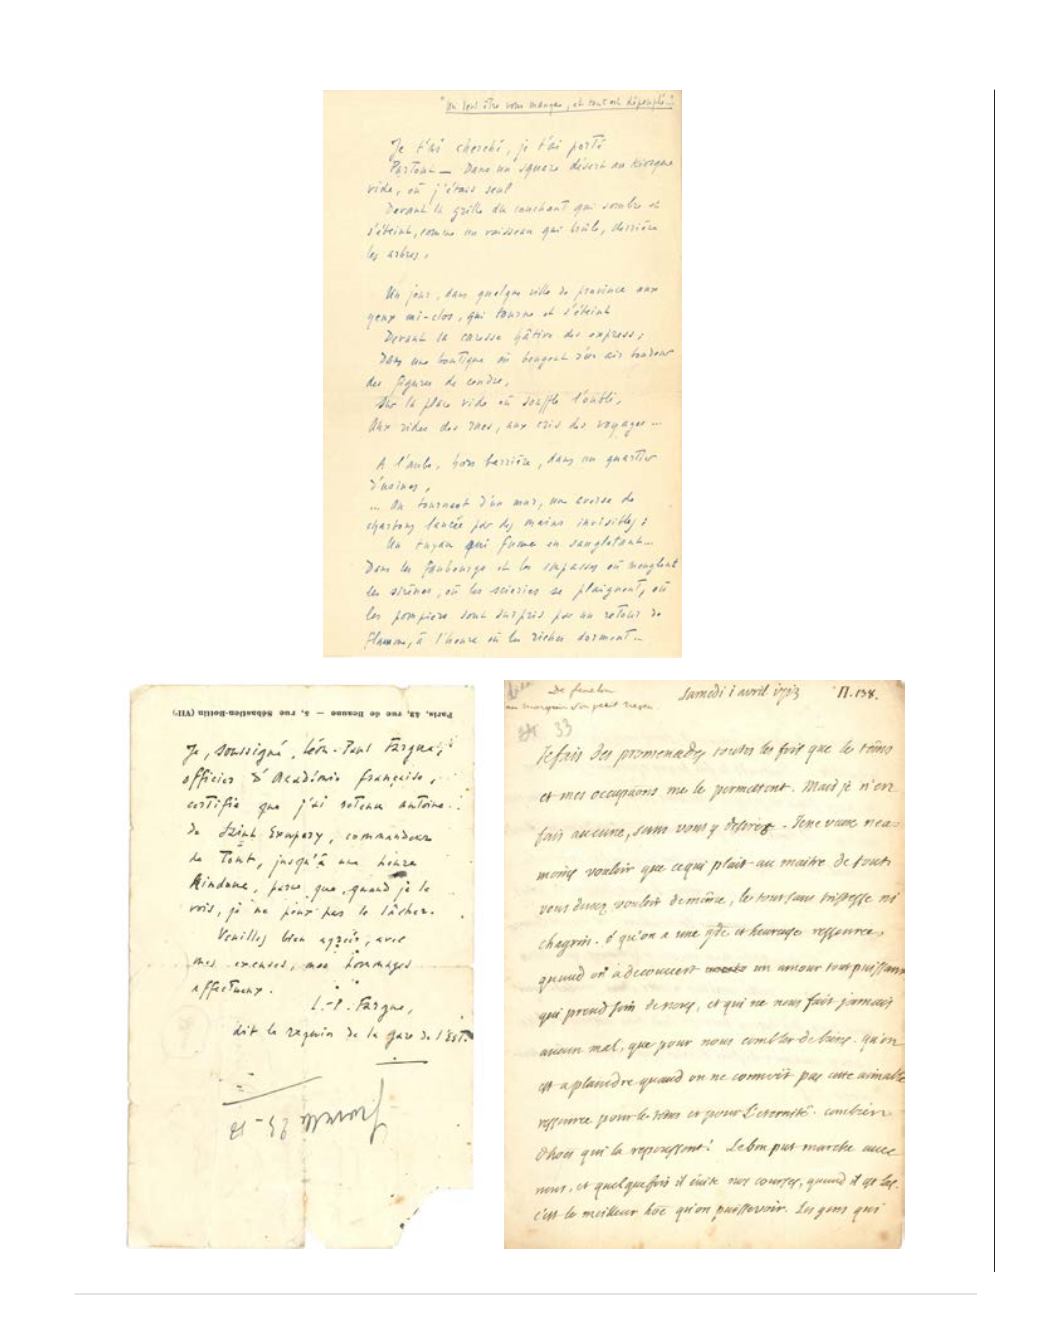 "Un seul être vous manque, et tout est dépeuplé."
Je t'ai cherché, je t'ai porté
Partout — Dans un square désert au kiosque
vide, où j'étais seul
Devant la grille du couchant qui sombre et
s'éteint, comme un vaisseau qui brûle, derrière
les arbres,
Un jour, dans quelque ville de province aux
yeux mi-clos, qui tourne et s'éteint
Devant la caresse hâtive des express;
Dans une boutique où bougent d'un air
des figures de cendre,
Sur la place vide où souffle l'oubli,
Aux rides des rues, aux cris des voyages ...
A l'aube, hors barrière, dans un quartier
d'usines,
... Au tournant d'un mur, une averse de
charbons lancée par des mains invisibles;
Un tuyau qui fume en sanglotant...
Dans les faubourgs et les impasses où meuglent
les sirènes, où les scieries se plaignent, où
les pompiers sont surpris par un retour de
flamme, à l'heure où les riches dorment...
Paris, 43, rue de Beaune — 5, rue Sébastien-Bottin (VIIe)
Je, soussigné, Léon-Paul Fargue,
officier d'Académie française,
certifie que j'ai retenu Antoine
de Saint Exupéry, commandeur
de Tout, jusqu'à une heure
Rindue, parce que, quand je le
vois, je ne peux pas le lâcher.
Veuillez bien agréer, avec
mes excuses, mes hommages
affectueux.
L.-P. Fargue,
dit le requin de la gare de l'Est.
De fenelon
au marquis son petit neveu
Samedi 1 avril 1713
П. 138.
33
Je fais des promenades toutes les fois que le tems
et mes occupaons me le permettent. Mais je n'en
fais aucune, sans vous y desirer. Je ne veux nea-
moins vouloir que ce qui plait au maitre de tout.
vous devez vouloir de même, le tout sans tristesse ni
chagrin. ô qu'on a une gde et heureuse ressource,
quand on a decouvert un amour tout puissant
qui prend soin de nous, et qui ne nous fait jamais
aucun mal, que pour nous combler de biens. qu'on
est a plaindre quand on ne connoit pas cette aimable
ressource pour le tems et pour L'eternité. combien
d'hoes qui la repoussent! Le bon put marche avec
nous, et quelquefois il évite nos courses, quand il
c'est le meilleur hoe qu'on puisse voir. Les gens qui